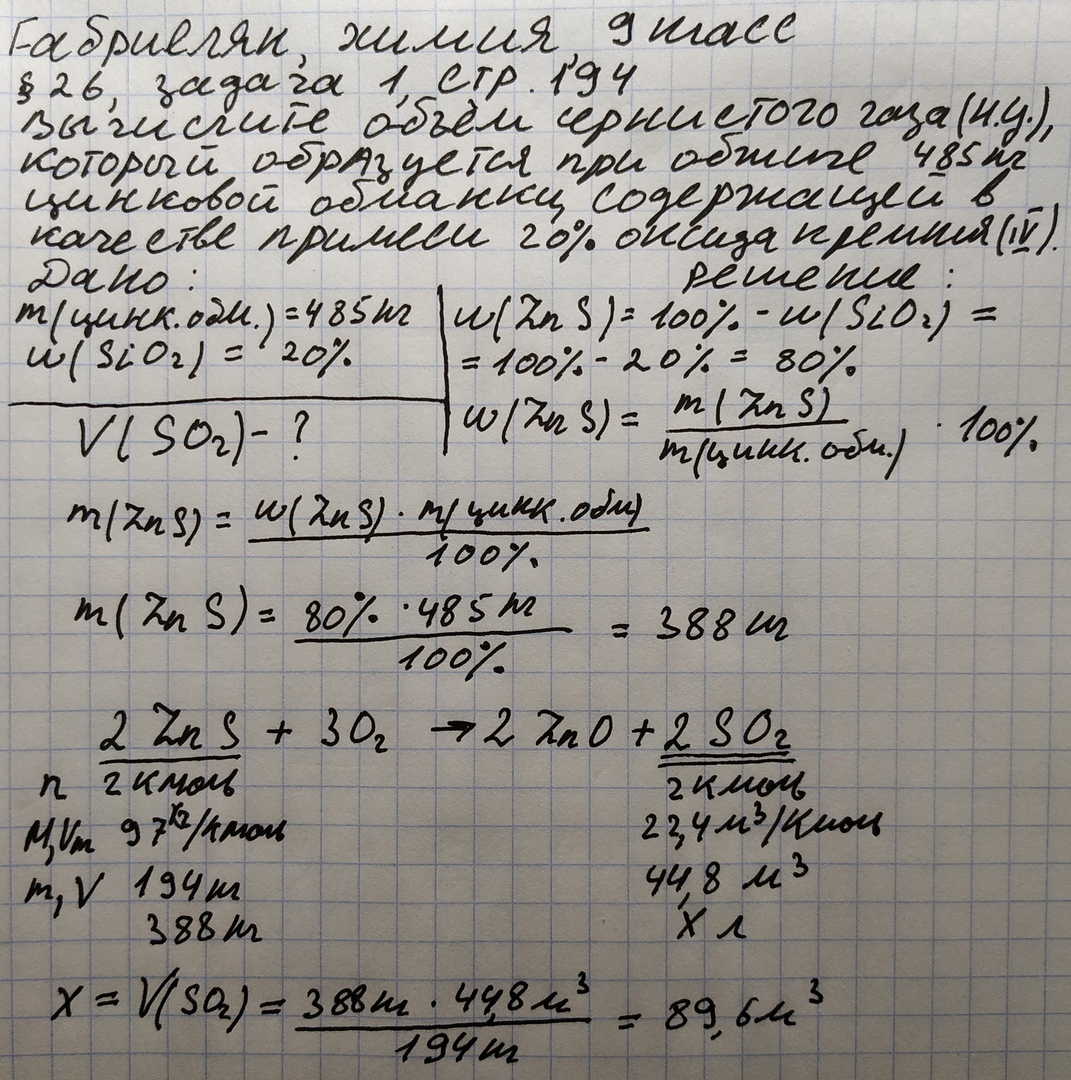 Габриелян, химия, 9 класс
§ 26, задача 1, стр. 194
Вычислите объём сернистого газа (н.у.),
который образуется при обжиге 485 кг
цинковой обманки, содержащей в
качестве примеси 20% оксида кремния (IV).
Дано: Решение:
m(цинк.обм.) = 485 кг w(ZnS) = 100% - w(SiO₂) =
w(SiO₂) = 20% = 100% - 20% = 80%
V(SO₂) - ? w(ZnS) = m(ZnS) / m(цинк.обм.) · 100%
m(ZnS) = w(ZnS) · m(цинк.обм) / 100%
m(ZnS) = 80% · 485 кг / 100% = 388 кг
2 ZnS + 3O₂ → 2 ZnO + 2 SO₂
n 2 кмоль 2 кмоль
M, Vm 97 кг/кмоль 22,4 м³/кмоль
m, V 194 кг 44,8 м³
388 кг X л
X = V(SO₂) = 388 кг · 44,8 м³ / 194 кг = 89,6 м³